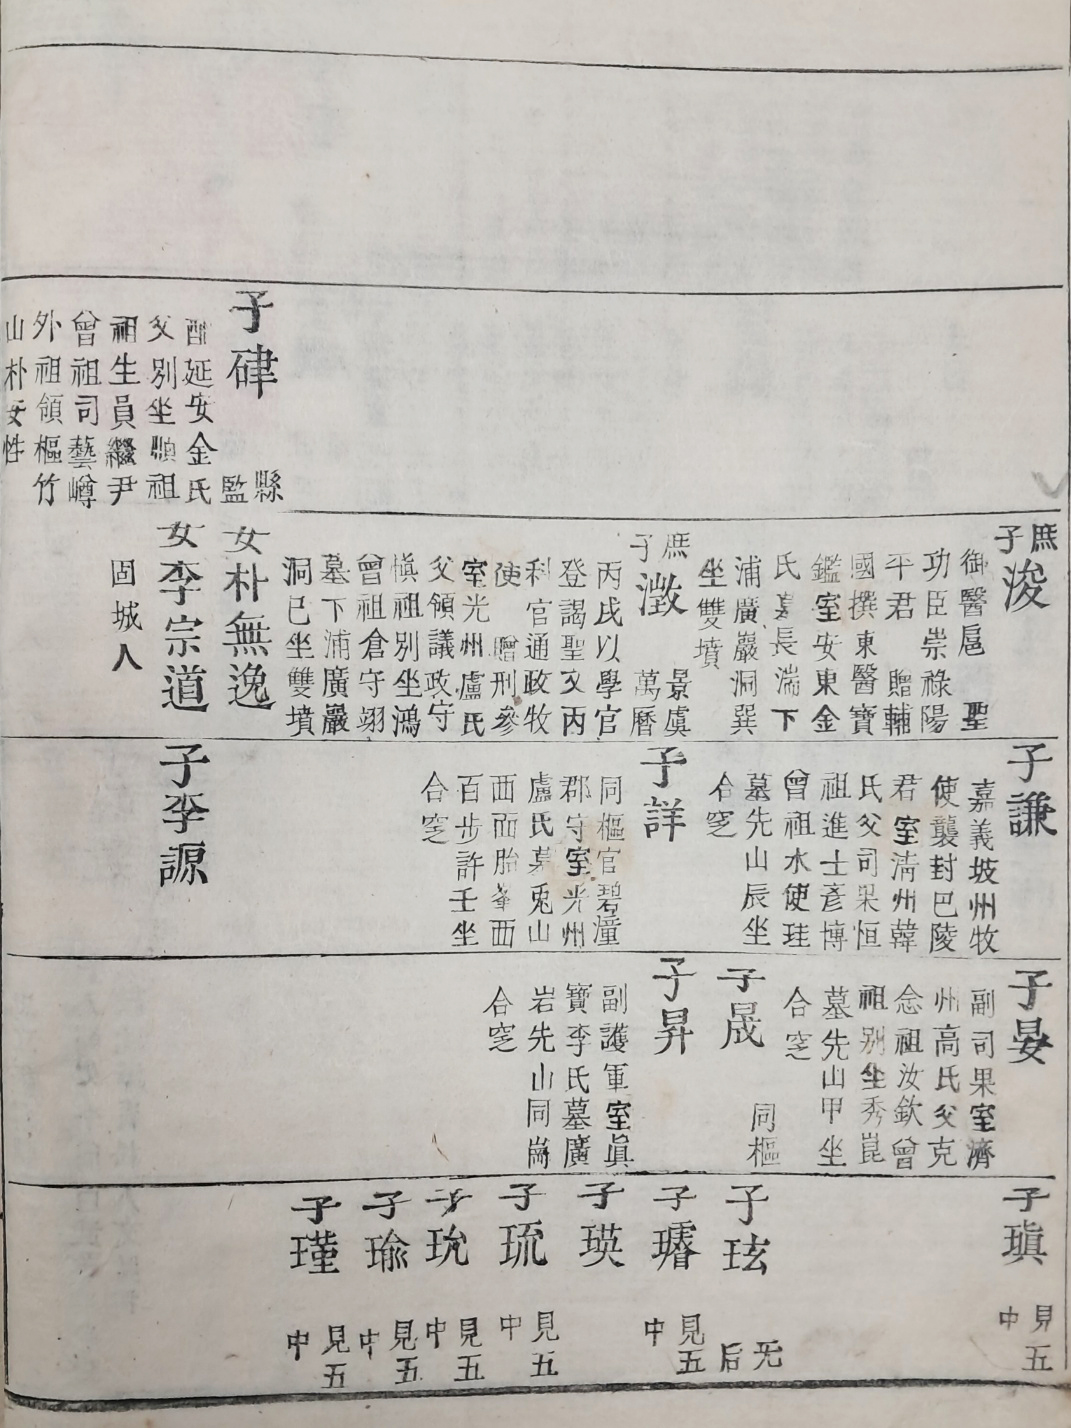 子硉
縣
監
酣延安金氏
父別坐順祖
祖生員繼尹
曾祖司藝嶟
外祖領樞竹
山朴安性
庶
子
浚
御醫扈聖
功臣崇祿陽
平君贈輔
國撰東醫寶
鑑室安東金
氏墓長湍下
浦廣巖洞巽
坐雙墳
庶
子
澂
景虞
萬曆
丙戌以學官
登謁聖文丙
科官通政牧
使贈刑參
室光州盧氏
父領議政守
愼祖別坐鴻
曾祖倉守翊
墓下浦廣巖
洞巳坐雙墳
女朴無逸
女李宗道
固城人
子謙
嘉義坡州牧
使襲封巴陵
君室淸州韓
氏父司果恒
祖進士彥博
曾祖水使珪
墓先山辰坐
合窆
子詳
同樞官碧潼
郡守室光州
盧氏墓兎山
西面胎峯西
百步許壬坐
合窆
子李源
子晏
副司果室濟
州高氏父克
念祖汝欽曾
祖別坐秀崑
墓先山甲坐
合窆
子晟
同樞
子昇
副護軍室眞
寶李氏墓廣
岩先山同崗
合窆
子瑱
見五
中
子玹
无
后
子璿
見五
中
子瑛
子琉
見五
中
子玧
見五
中
子瑜
見五
中
子瑾
見五
中